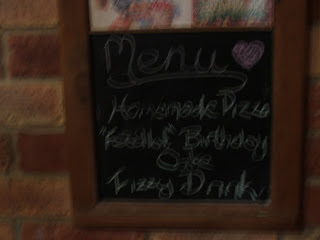 Menu
Homemade Pizza
Birthday
Cake
Fizzy Drink